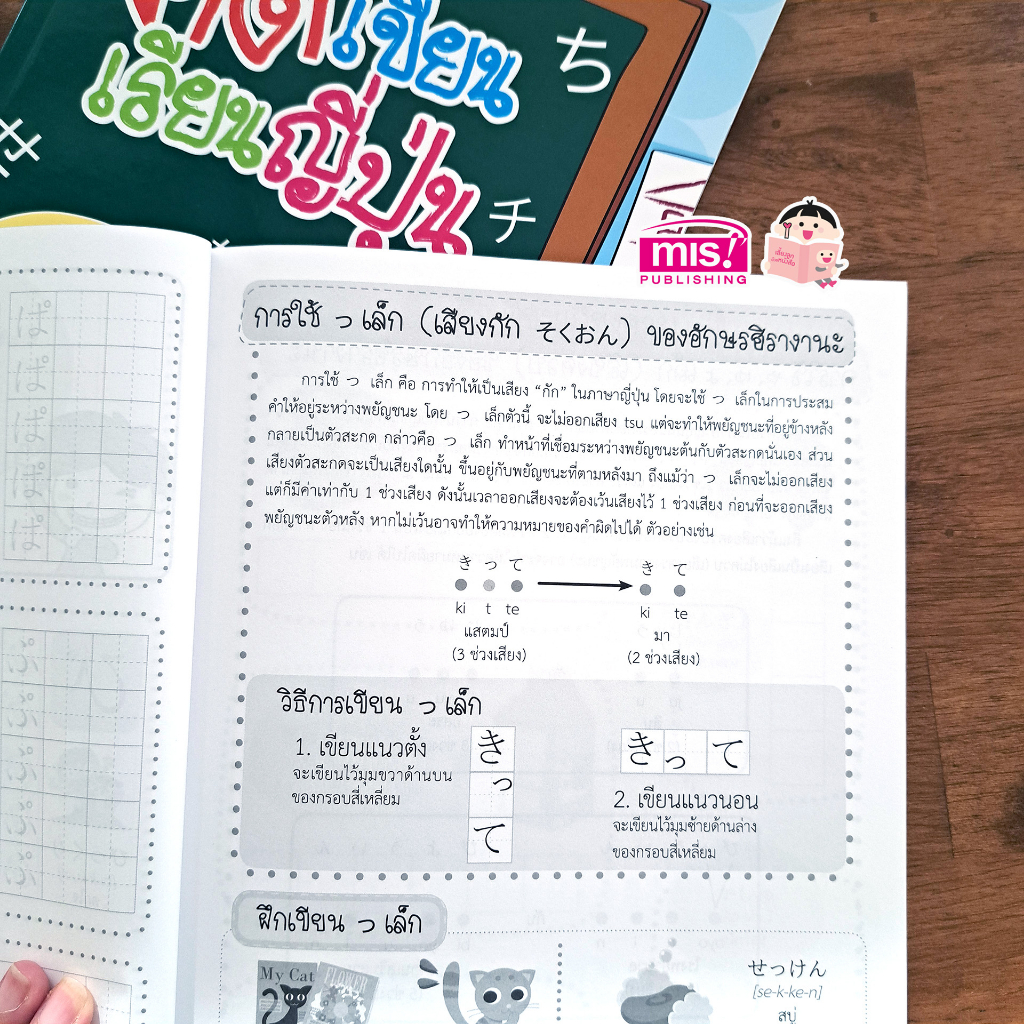 คัดเขียน
เรียนญี่ปุ่น
ち
チ
mis!
PUBLISHING
การใช้ っ เล็ก (เสียงกัก そくおん) ของอักษรฮิรางานะ
การใช้ っ เล็ก คือ การทำให้เป็นเสียง “กัก” ในภาษาญี่ปุ่น โดยจะใช้ っ เล็กในการประสม
คำให้อยู่ระหว่างพยัญชนะ โดย っ เล็กตัวนี้ จะไม่ออกเสียง tsu แต่จะทำให้พยัญชนะที่อยู่ข้างหลัง
กลายเป็นตัวสะกด กล่าวคือ っ เล็ก ทำหน้าที่เชื่อมระหว่างพยัญชนะต้นกับตัวสะกดนั่นเอง ส่วน
เสียงตัวสะกดจะเป็นเสียงใดนั้น ขึ้นอยู่กับพยัญชนะที่ตามหลังมา ถึงแม้ว่า っ เล็กจะไม่ออกเสียง
แต่ก็มีค่าเท่ากับ 1 ช่วงเสียง ดังนั้นเวลาออกเสียงจะต้องเว้นเสียงไว้ 1 ช่วงเสียง ก่อนที่จะออกเสียง
พยัญชนะตัวหลัง หากไม่เว้นอาจทำให้ความหมายของคำผิดไปได้ ตัวอย่างเช่น
き っ て
ki t te
แสตมป์
(3 ช่วงเสียง)
き て
ki te
มา
(2 ช่วงเสียง)
วิธีการเขียน っ เล็ก
1. เขียนแนวตั้ง
จะเขียนไว้มุมขวาด้านบน
ของกรอบสี่เหลี่ยม
き
っ
て
きって
2. เขียนแนวนอน
จะเขียนไว้มุมซ้ายด้านล่าง
ของกรอบสี่เหลี่ยม
ฝึกเขียน っ เล็ก
My Cat
FLOWER
せっけん
[se-k-ke-n]
สบู่